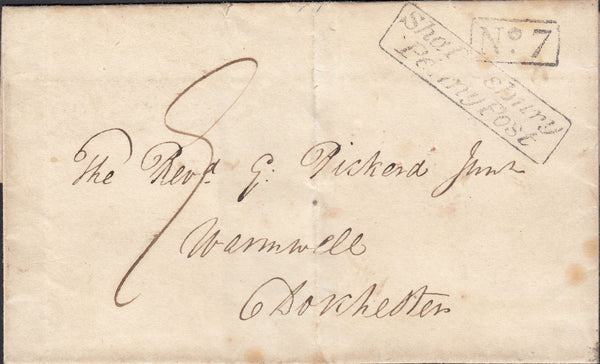 No. 7
Shaftesbury
Penny Post
The Revd. G. Pickerd Junr
Warmwell
Dorchester